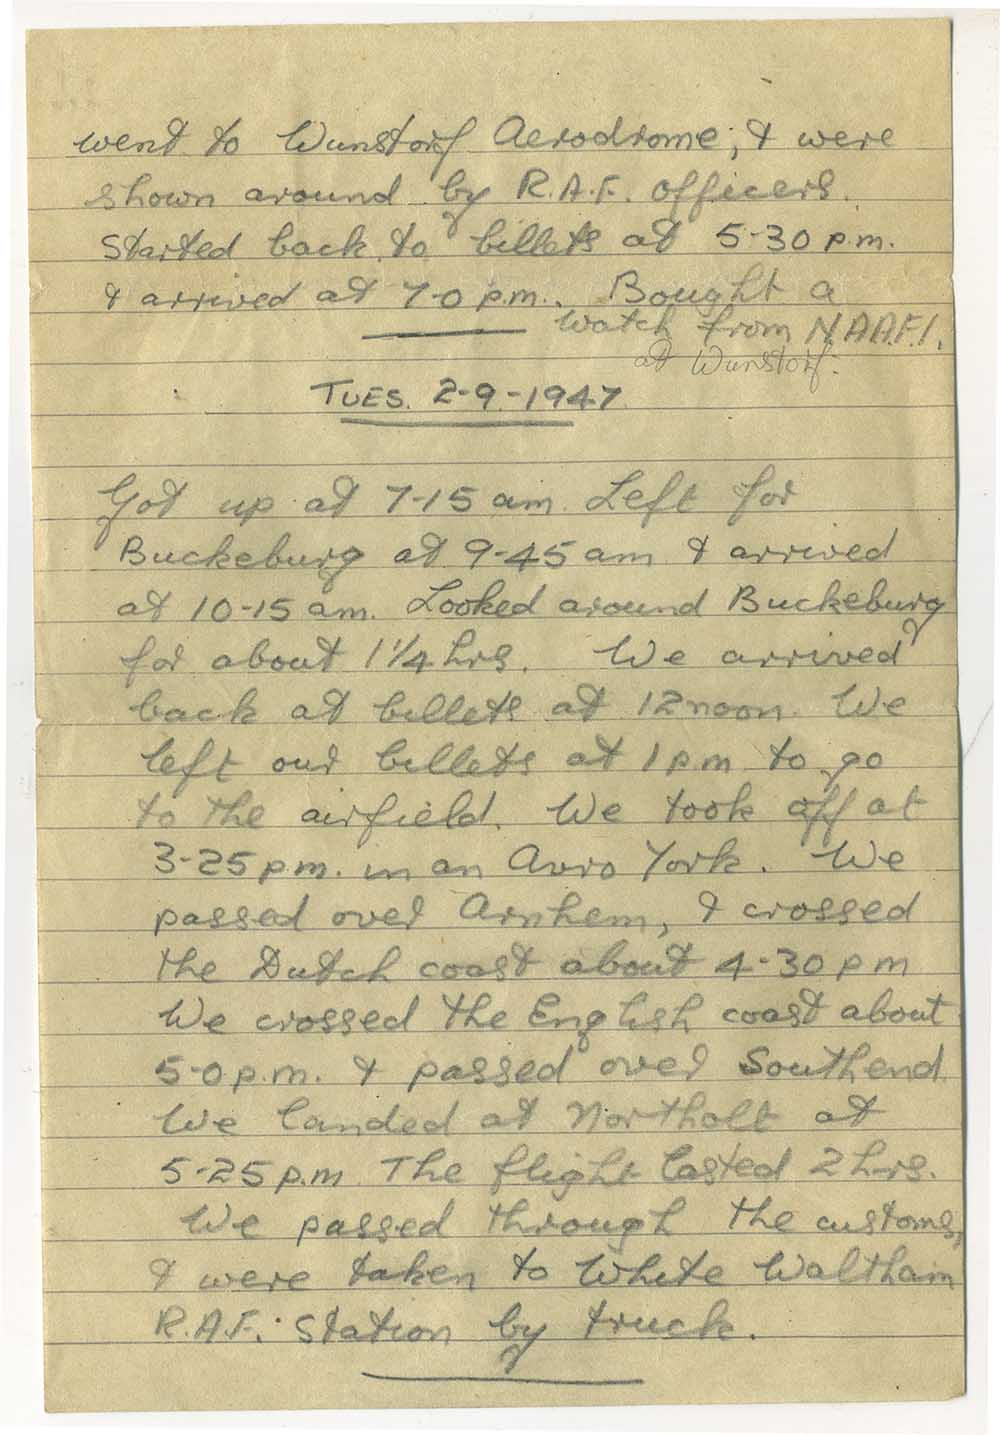 went to Wunstorf Aerodrome, & were
shown around by R.A.F. officers.
Started back to billets at 5-30 p.m.
& arrived at 7-0 p.m. Bought a
watch from N.A.A.F.I.
at Wunstorf.
TUES. 2-9-1947
Got up at 7-15 am. Left for
Buckeburg at 9-45 am & arrived
at 10-15 am. Looked around Buckeburg
for about 1 1/4 hrs. We arrived
back at billets at 12 noon. We
left our billets at 1 pm to go
to the airfield. We took off at
3-25 p.m. in an Avro York. We
passed over Arnhem, & crossed
the Dutch coast about 4-30 pm
We crossed the English coast about
5-0 p.m. & passed over Southend.
We landed at Northolt at
5-25 p.m. The flight lasted 2 hrs.
We passed through the customs,
& were taken to White Waltham
R.A.F. Station by truck.